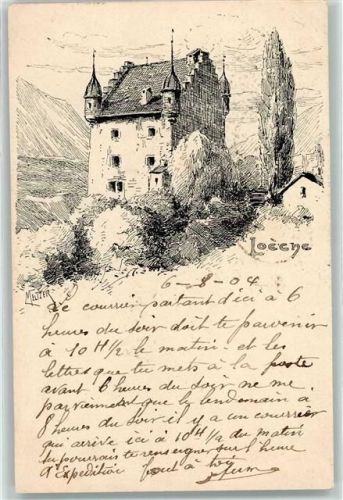 Loèche
MELTER
6-8-04
Le courrier partant d'ici à 6
heures du soir doit te parvenir
à 10 H 1/2 le matin - et les
lettres que tu mets à la poste
avant 6 heures du soir ne me
parviennent que le lendemain à
8 heures du soir il y a un courrier
qui arrive ici à 10 H 1/2 du matin
tu pourrais te renseigner sur l'heure
d'Expédition tout à toi